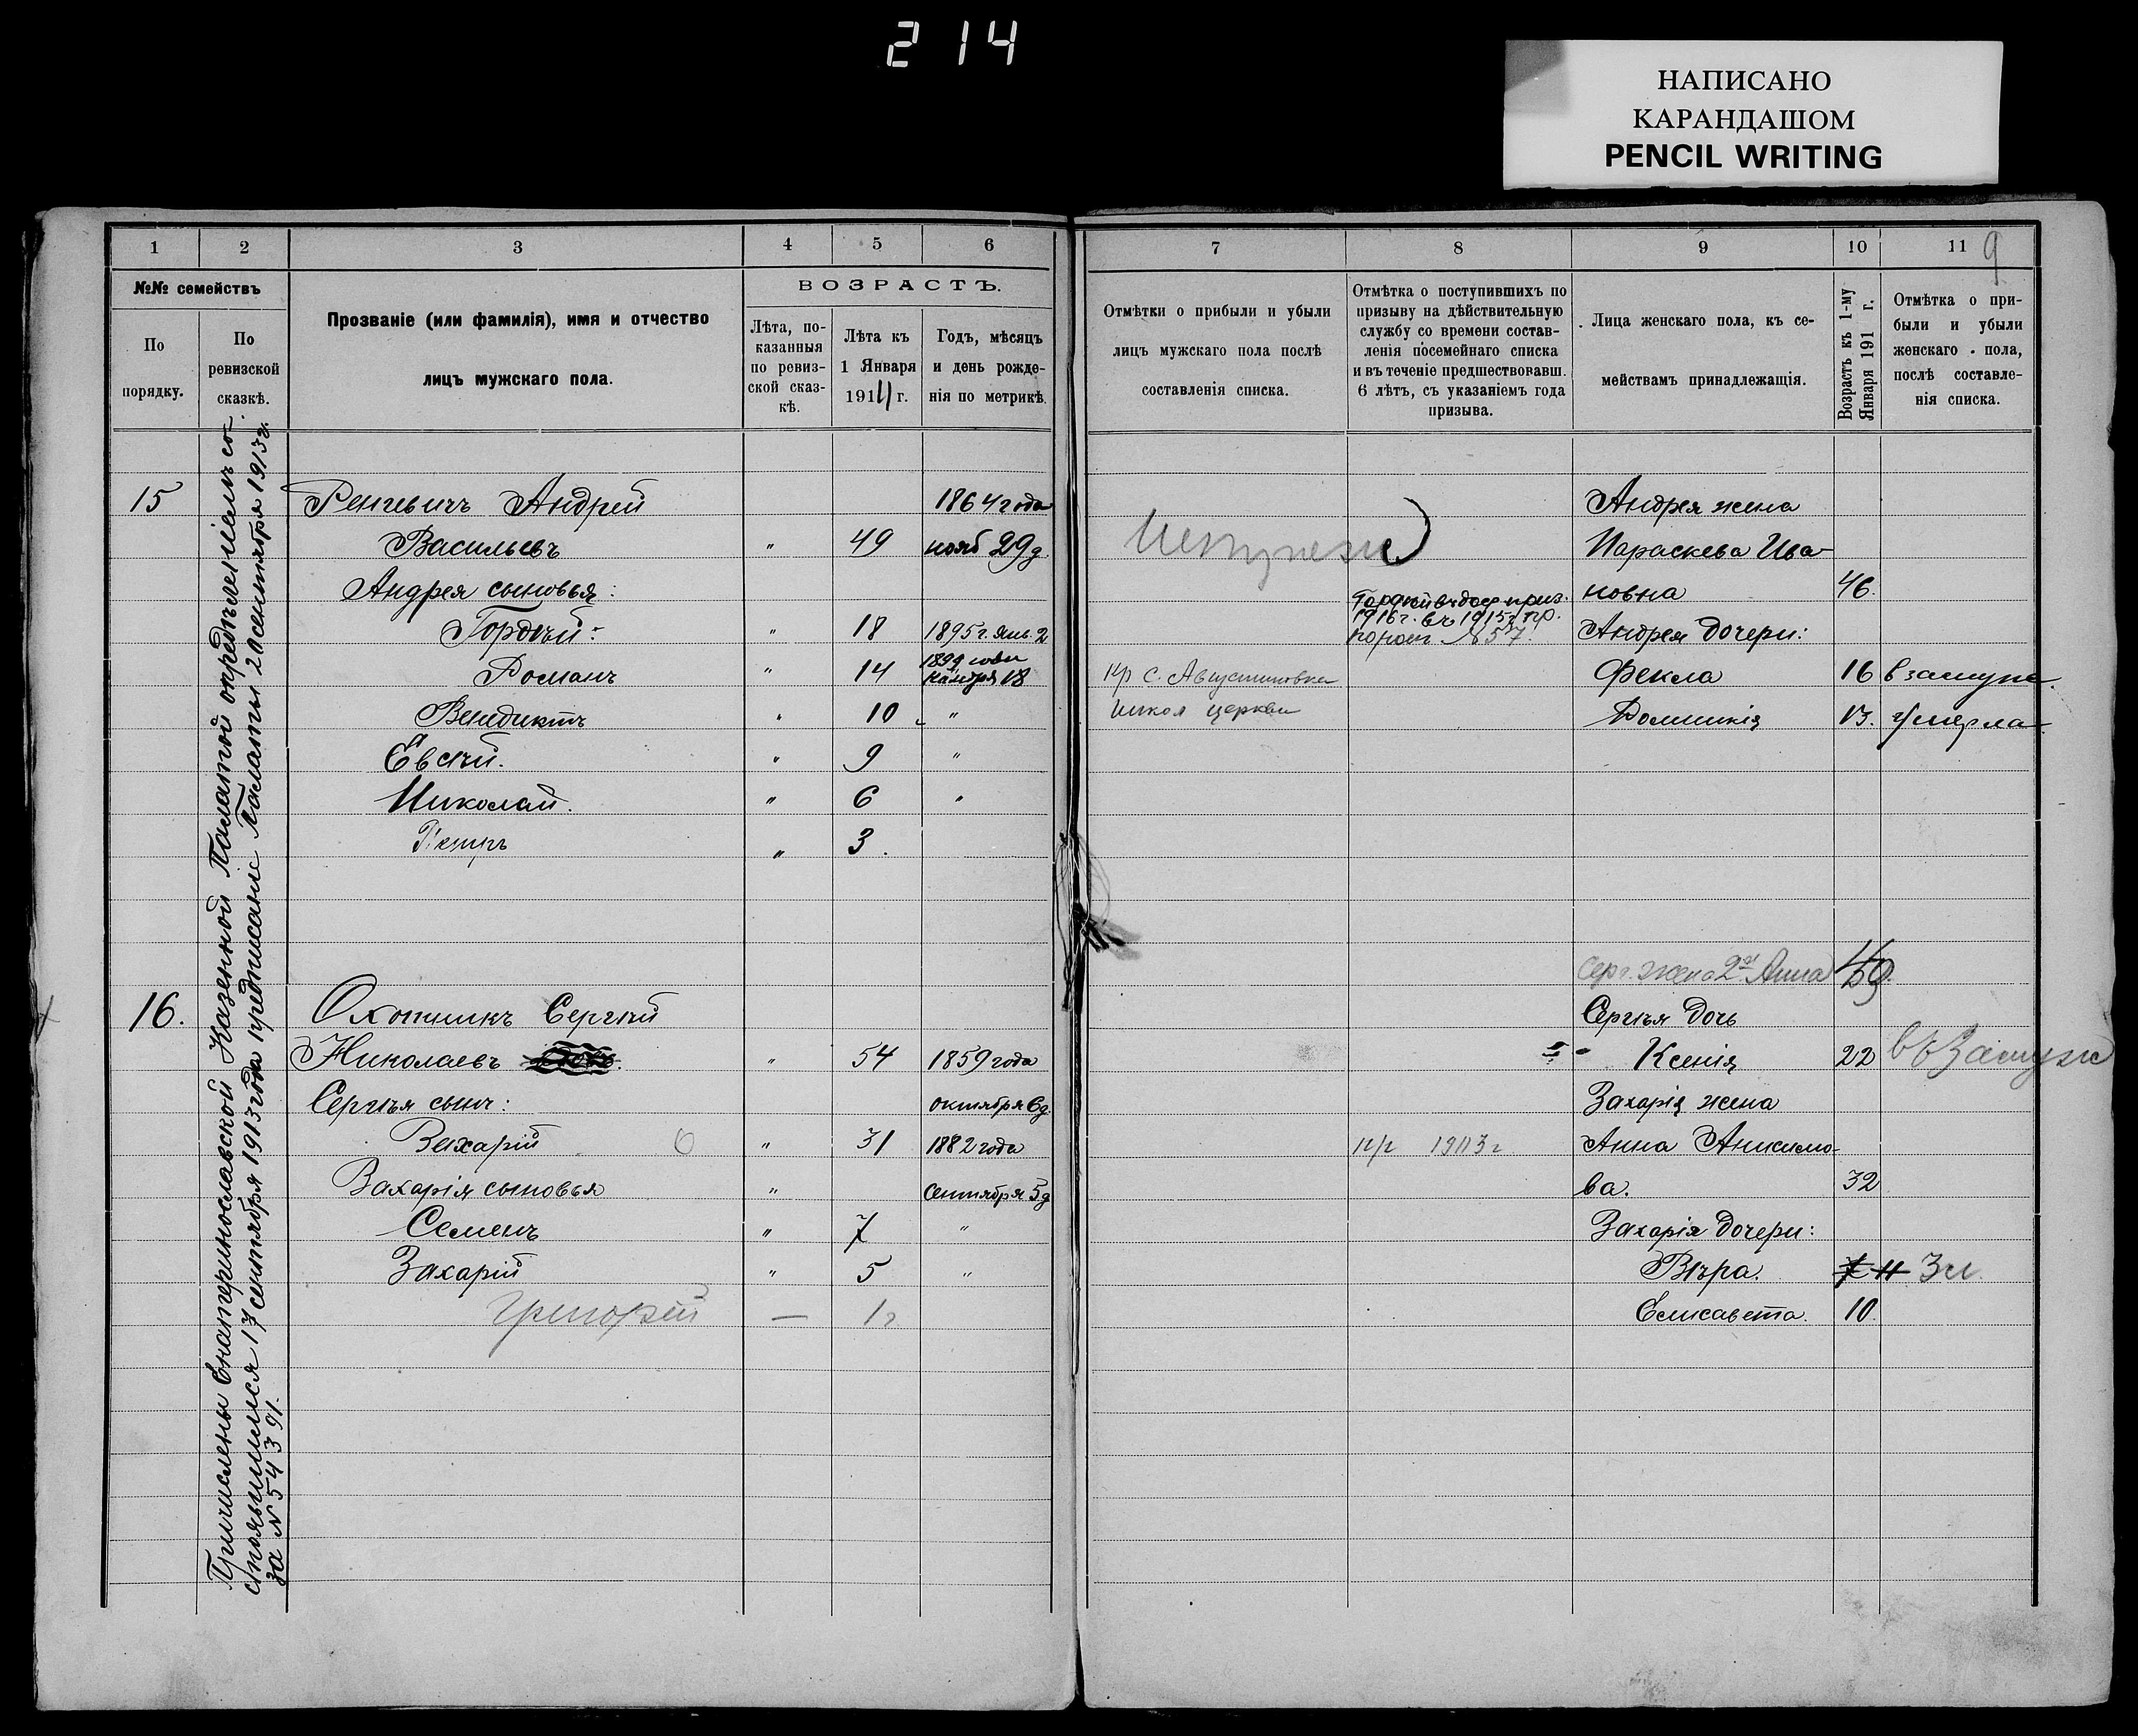 214
НАПИСАНО
КАРАНДАШОМ
PENCIL WRITING
9
1 2 3 4 5 6 7 8 9 10 11
№№ семействъ
По порядку.
По ревизской сказкѣ.
Прозваніе (или фамилія), имя и отчество
лицъ мужскаго пола.
ВОЗРАСТЪ.
Лѣта, по-
казанныя
по ревиз-
ской сказ-
кѣ.
Лѣта къ
1 Января
1914 г.
Годъ, мѣсяцъ
и день рожде-
нія по метрикѣ.
Отмѣтки о прибыли и убыли
лицъ мужскаго пола послѣ
составленія списка.
Отмѣтка о поступившихъ по
призыву на дѣйствительную
службу со времени состав-
ленія посемейнаго списка
и въ теченіе предшествовавш.
6 лѣтъ, съ указаніемъ года
призыва.
Лица женскаго пола, къ се-
мействамъ принадлежащія.
Возрастъ къ 1-му
Января 191 г.
Отмѣтка о при-
были и убыли
женскаго пола,
послѣ составле-
нія списка.
Причислены Екатеринославской Казенной Палатой опредѣленіемъ со-
стоявшимся 17 сентября 1913 года предписаніе Палаты 20 сентября 1913 г.
за № 54391.
15 Ренгевичъ Андрей 1864 года Андрея жена
Васильевъ " 49 нояб 29 д. Параскева Ива-
Андрея сыновья: новна 46.
Гордѣй: " 18 1895 г. янв. 2 1916 г. въ 1915 г. пр. № 57. Андрея дочери:
Романъ " 14 18 пр с. Августиновка Фекла 16 взамуж.
Венедиктъ " 10 " церкви 13. умерла
Евсѣй. " 9 "
Николай. " 6 "
Петръ " 3.
Серг. жена 2я Анна
16. Охотникъ Сергѣй Сергѣя дочь
Николаевъ " 54 1859 года Ксенія 22 въ замуж
Сергѣя сынъ: октября 6 д. Захарія жена
Захарій " 31 1882 года пр 1903 г Анна Анисимо-
Захарія сыновья " сентября 5 д ва. 32
Семенъ " 7 " Захарія дочери:
Захарій " 5 " Вѣра. 7 11
Григорій — 1 г Елисавета. 10